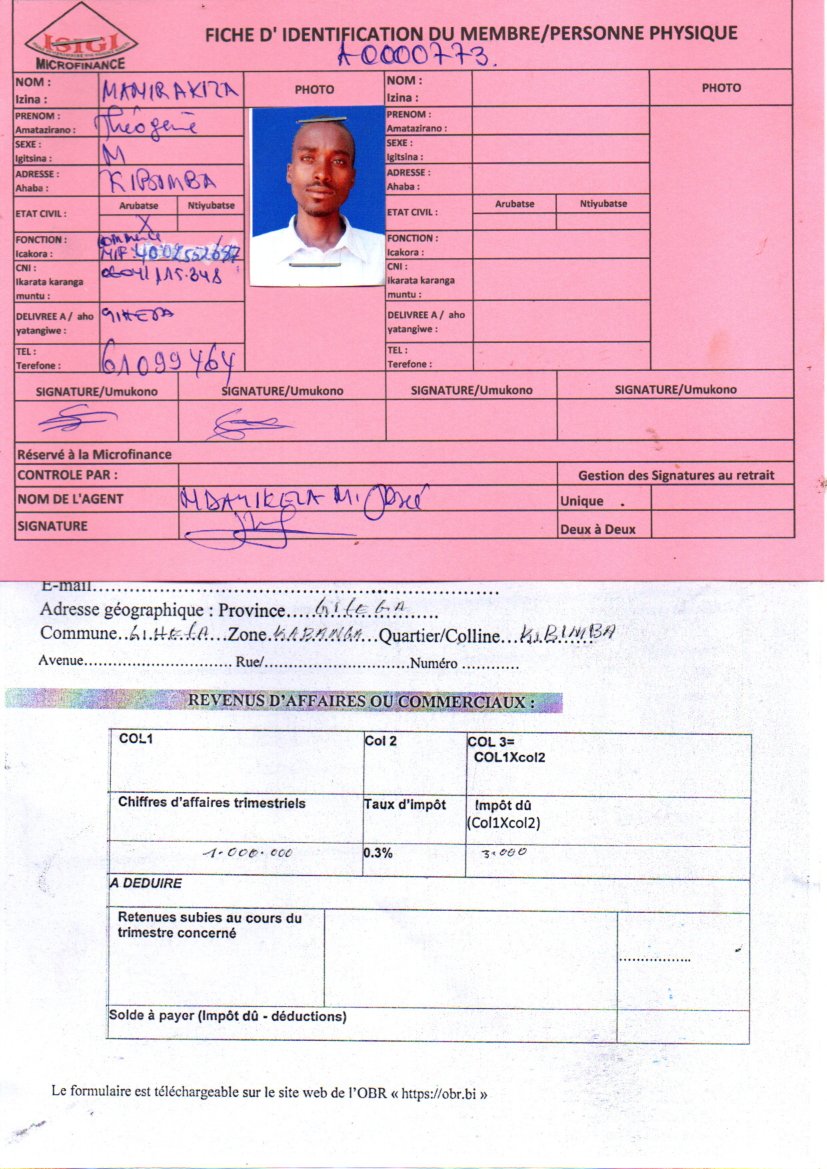 ISIGI
MICROFINANCE
FICHE D' IDENTIFICATION DU MEMBRE/PERSONNE PHYSIQUE
A0000773.
NOM :
Izina :
MANIRAKIZA
PHOTO
NOM :
Izina :
PHOTO
PRENOM :
Amatazirano :
Théogène
PRENOM :
Amatazirano :
SEXE :
Igitsina :
M
SEXE :
Igitsina :
ADRESSE :
Ahaba :
KIBIMBA
ADRESSE :
Ahaba :
ETAT CIVIL :
Arubatse
Ntiyubatse
X
ETAT CIVIL :
Arubatse
Ntiyubatse
FONCTION :
Icakora :
commerce
NIF: 4002552687
FONCTION :
Icakora :
CNI :
Ikarata karanga
muntu :
CNI :
Ikarata karanga
muntu :
DELIVREE A / aho
yatangiwe :
GIHETA
DELIVREE A / aho
yatangiwe :
TEL :
Terefone :
61099464
TEL :
Terefone :
SIGNATURE/Umukono
SIGNATURE/Umukono
SIGNATURE/Umukono
SIGNATURE/Umukono
Réservé à la Microfinance
CONTROLE PAR :
Gestion des Signatures au retrait
NOM DE L'AGENT
NDAYIKEZA M. José
Unique .
SIGNATURE
Deux à Deux
E-mail..........
Adresse géographique : Province....GITEGA..........
Commune..GIHETA...Zone.KABANGA...Quartier/Colline...KIBIMBA
Avenue.......... Rue/..........Numéro ............
REVENUS D'AFFAIRES OU COMMERCIAUX :
COL1
Col 2
COL 3=
COL1Xcol2
Chiffres d'affaires trimestriels
Taux d'impôt
Impôt dû
(Col1Xcol2)
1.000.000
0.3%
3.000
A DEDUIRE
Retenues subies au cours du
trimestre concerné
.................
Solde à payer (Impôt dû - déductions)
Le formulaire est téléchargeable sur le site web de l'OBR « https://obr.bi »